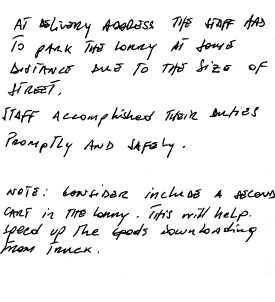 AT DELIVERY ADDRESS THE STAFF HAD
TO PARK THE LORRY AT SOME
DISTANCE DUE TO THE SIZE OF
STREET.
STAFF ACCOMPLISHED THEIR DUTIES
PROMPTLY AND SAFELY.
NOTE: CONSIDER INCLUDE A SECOND
CART IN THE LORRY. THIS WILL HELP.
SPEED UP THE GOODS DOWNLOADING
FROM TRUCK.